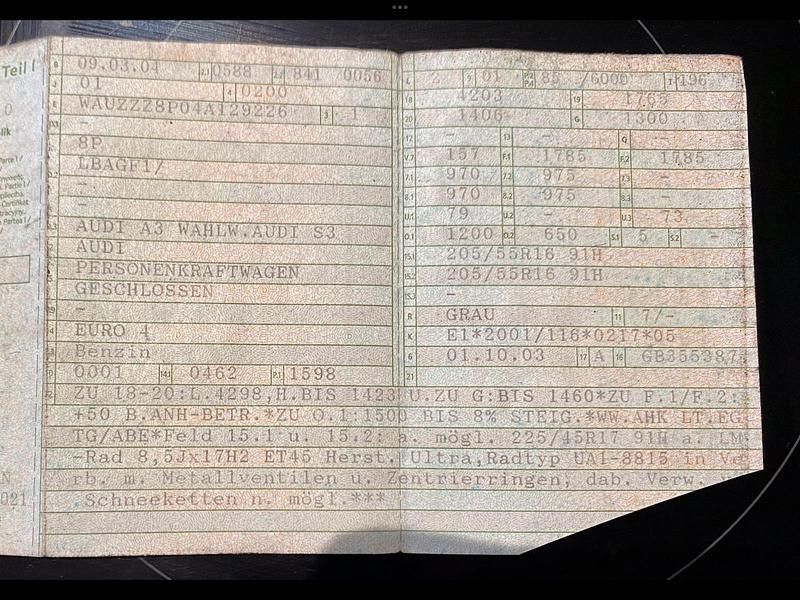 Teil I
B 09.03.04 2.1 0588 2.2 841 0056
J 01 4 0200
E WAUZZZ8P04A129226 3 1
D.1 -
8P
D.2 LBAGF1/
-
-
D.3 AUDI A3 WAHLW.AUDI S3
AUDI
PERSONENKRAFTWAGEN
GESCHLOSSEN
-
EURO 4
Benzin
0001 14.1 0462 P.1 1598
L 2 9 01 P.2 P.4 85 /6000 T 196
18 4203 19 1765
20 1406 G 1300
12 - 13 - Q -
V.7 157 F.1 1785 F.2 1785
7.1 970 7.2 975 7.3 -
8.1 970 8.2 975 8.3 -
U.1 79 U.2 - U.3 73
O.1 1200 O.2 650 S.1 5 S.2 -
15.1 205/55R16 91H
15.2 205/55R16 91H
15.3 -
R GRAU 11 7/-
K E1*2001/116*0217*05
6 01.10.03 17 A 16 GB355387
21
ZU 18-20:L.4298,H.BIS 1423 U.ZU G:BIS 1460*ZU F.1/F.2:
+50 B.ANH-BETR.*ZU O.1:1500 BIS 8% STEIG.*WW.AHK LT.EG
TG/ABE*Feld 15.1 u. 15.2: a. mögl. 225/45R17 91H a. LM
-Rad 8,5Jx17H2 ET45 Herst. Ultra,Radtyp UA1-8815 in Ve
rb. m. Metallventilen u. Zentrierringen, dab. Verw.
.Schneeketten n. mögl.***